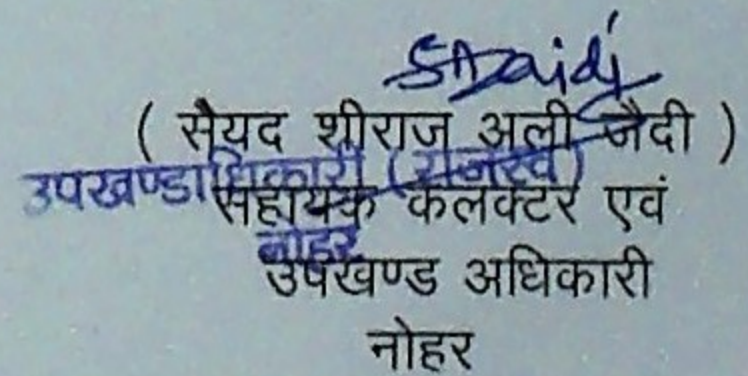 SAZaidi
( सैयद शीराज अली जैदी )
उपखण्डाधिकारी (राजस्व)
सहायक कलक्टर एवं
नोहर
उपखण्ड अधिकारी
नोहर